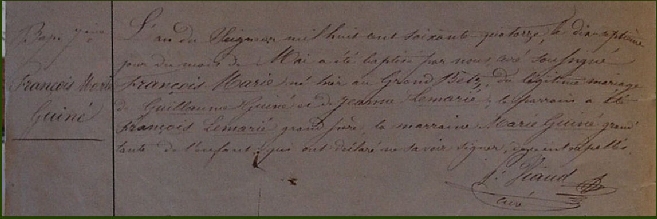 Bap. 7ème
François Marie
Guiné
L'an du Seigneur mil huit cent soixante quatorze, le dix-septième
jour du mois de Mai a été baptisé par nous, curé soussigné
François Marie, né hier au Grand, du légitime mariage
de Guillaume Guiné et de Jeanne Lemarié; le parrain a été
François Lemarié grand père, la marraine Marie Guiné grand
tante de l'enfant, qui ont déclaré ne savoir signer, de ce interpellés.
J. Giaud
curé